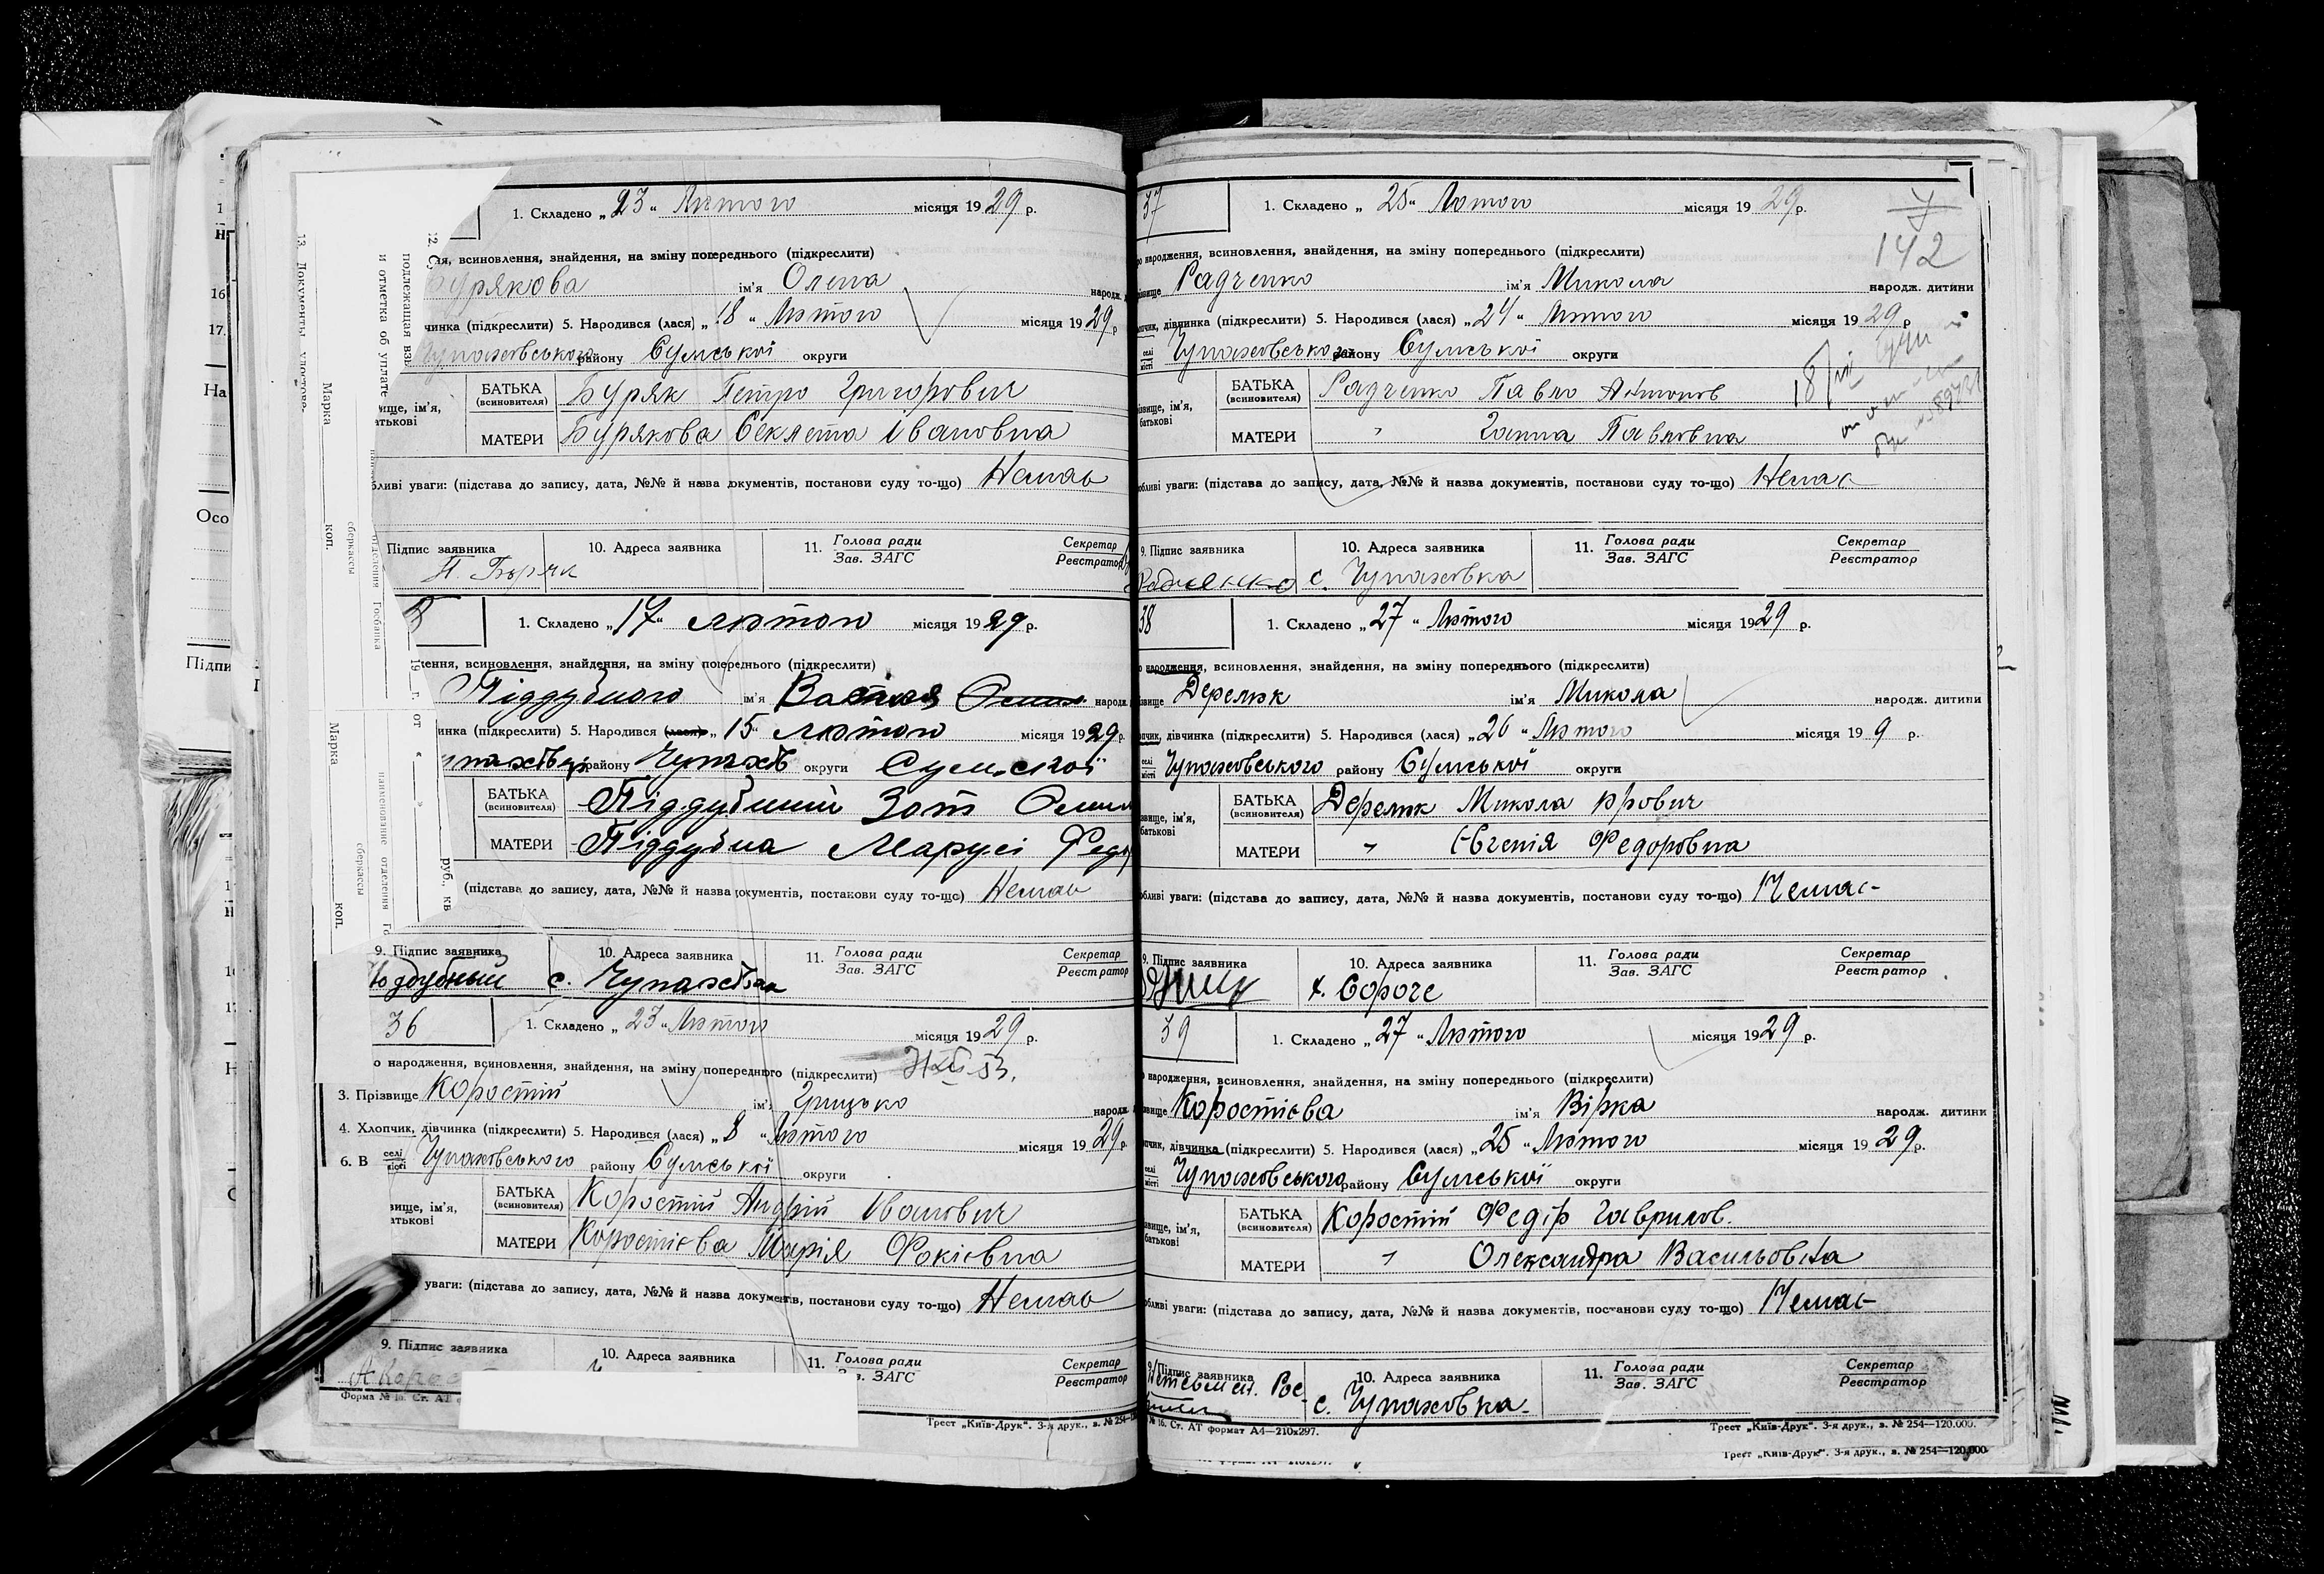 1. Складено „23“ Лютого місяця 1929 р.
ня, всиновлення, знайдення, на зміну попереднього (підкреслити)
Бурякова ім'я Олена народж.
чинка (підкреслити) 5. Народився (лася) „18“ Лютого місяця 1929 р
Чупаховського району Сумської округи
БАТЬКА (всиновителя) Буряк Петро Григорович
вище, ім'я, атькові
МАТЕРИ Бурякова Секлета Івановна
бливі уваги: (підстава до запису, дата, №№ й назва документів, постанови суду то-що) Немає
Підпис заявника 10. Адреса заявника 11. Голова ради Секретар
Зав. ЗАГС Реєстратор
П. Буряк
1. Складено „17“ лютого місяця 1929 р.
ення, всиновлення, знайдення, на зміну попереднього (підкреслити)
Піддубного ім'я народж.
инка (підкреслити) 5. Народився (лася) „15“ лютого місяця 1929 р.
району Чупахів округи Сумської
БАТЬКА (всиновителя) Піддубний Зот
МАТЕРИ Піддубна Марусі Федо
(підстава до запису, дата, №№ й назва документів, постанови суду то-що) Немає
9. Підпис заявника 10. Адреса заявника 11. Голова ради Секретар
Зав. ЗАГС Реєстратор
с. Чупахівка
36 1. Складено „23“ Лютого місяця 1929 р.
о народження, всиновлення, знайдення, на зміну попереднього (підкреслити)
3. Прізвище Коростій ім'я Грицько народж.
4. Хлопчик, дівчинка (підкреслити) 5. Народився (лася) „8“ Лютого місяця 1929 р.
6. В селі місті Чупаховського району Сумської округи
БАТЬКА (всиновителя) Коростій Андрій Іванович
вище, ім'я, атькові
МАТЕРИ Коростієва Марія Фокієвна
уваги: (підстава до запису, дата, №№ й назва документів, постанови суду то-що) Немає
9. Підпис заявника 10. Адреса заявника 11. Голова ради Секретар
Зав. ЗАГС Реєстратор
Форма № 16. Ст. АТ
Трест „Київ-Друк“. 3-я друк., з. № 254—
37 1. Складено „25“ Лютого місяця 1929 р.
142
о народження, всиновлення, знайдення, на зміну попереднього (підкреслити)
звище Радченко ім'я Микола народж. дитини
пчик, дівчинка (підкреслити) 5. Народився (лася) „24“ Лютого місяця 1929 р
селі місті Чупаховського району Сумської округи
БАТЬКА (всиновителя) Радченко Павло Антонов
ізвище, ім'я, батькові
МАТЕРИ " Ганна Павловна
обливі уваги: (підстава до запису, дата, №№ й назва документів, постанови суду то-що) Немає
9. Підпис заявника 10. Адреса заявника 11. Голова ради Секретар
Зав. ЗАГС Реєстратор
с. Чупаховка
38 1. Складено „27“ Лютого місяця 1929 р.
о народження, всиновлення, знайдення, на зміну попереднього (підкреслити)
ізвище Дерелюк ім'я Микола народж. дитини
пчик, дівчинка (підкреслити) 5. Народився (лася) „26“ Лютого місяця 19 9 р.
селі місті Чупаховського району Сумської округи
БАТЬКА (всиновителя) Дерелюк Микола
звище, ім'я, батькові
МАТЕРИ " Євгенія Федоровна
обливі уваги: (підстава до запису, дата, №№ й назва документів, постанови суду то-що) Немає
9. Підпис заявника 10. Адреса заявника 11. Голова ради Секретар
Зав. ЗАГС Реєстратор
х. Сороче
39 1. Складено „27“ Лютого місяця 1929 р.
о народження, всиновлення, знайдення, на зміну попереднього (підкреслити)
звище Коростієва ім'я Вірка народж. дитини
пчик, дівчинка (підкреслити) 5. Народився (лася) „25“ Лютого місяця 1929 р.
селі місті Чупаховського району Сумської округи
БАТЬКА (всиновителя) Коростій Федір Гаврилов.
звище, ім'я, батькові
МАТЕРИ " Олександра Васильовна
обливі уваги: (підстава до запису, дата, №№ й назва документів, постанови суду то-що) Немає
9. Підпис заявника 10. Адреса заявника 11. Голова ради Секретар
Зав. ЗАГС Реєстратор
с. Чупаховка.
№ 16. Ст. АТ формат А4—210х297.
Трест „Київ-Друк“. 3-я друк., з. № 254—120.000.
Трест „Київ-Друк“. 3-я друк., з. № 254—120,000